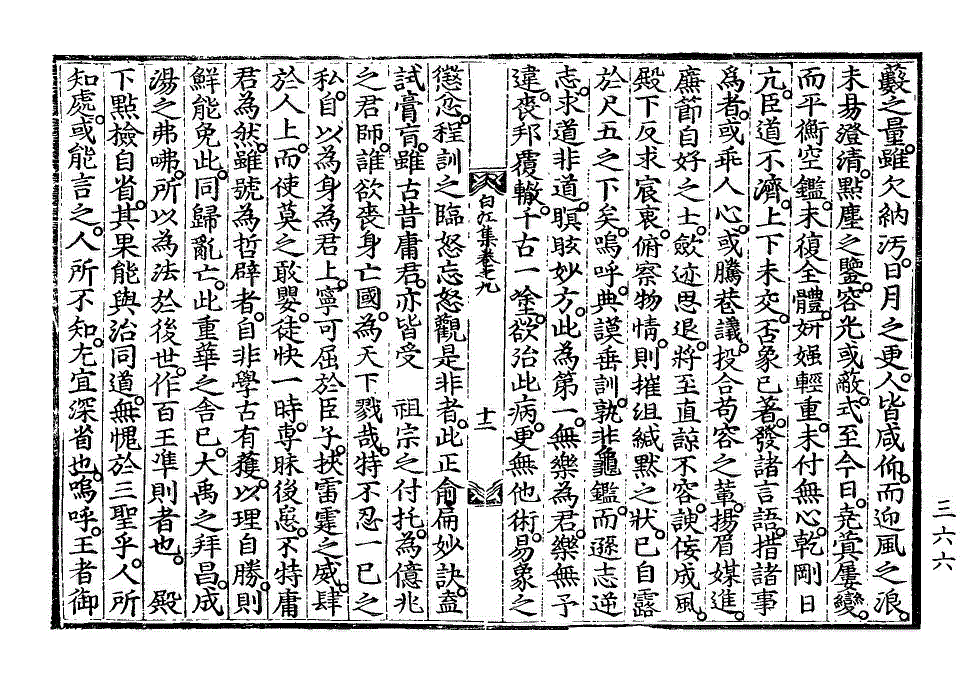 藪之量。雖欠納汚。日月之更。人皆咸仰。而迎風之浪。
未易澄淸。點塵之鑒。容光或蔽。式至今日。堯蓂屢變。
而平衡空鑑。未復全體。姸媸輕重。未付無心。乾剛日
亢。臣道不濟。上下未交。否象已著。發諸言語。措諸事
爲者。或乖人心。或騰巷議。投合苟容之輩。揚眉媒進。
廉節自好之士。斂迹思退。將至直諒不容。諛佞成風。
殿下反求宸衷。俯察物情。則摧組緘默之狀。已自露
於尺五之下矣。嗚呼。典謨垂訓。孰非龜鑑。而遜志逆
志。求道非道。瞑眩妙方。此爲第一。無樂爲君。樂無予
違。喪邦覆轍。千古一塗。欲治此病。更無他術。易象之
白江集卷之九
十二
懲忿。程訓之臨怒忘怒觀是非者。此正兪扁妙訣。盍
試膏肓。雖古昔庸君。亦皆受 祖宗之付托。爲億兆
之君師。誰欲喪身亡國。爲天下戮哉。特不忍一己之
私。自以爲身爲君上。寧可屈於臣子。挾雷霆之威。肆
於人上。而使莫之敢嬰。徒快一時。專昧後患。不特庸
君爲然。雖號爲哲辟者。自非學古有獲。以理自勝。則
鮮能免此。同歸亂亡。此重華之舍已。大禹之拜昌。成
湯之弗咈。所以爲法於後世。作百王準則者也。 殿
下點檢自省。其果能與治同道。無愧於三聖乎。人所
知處。或能言之。人所不知。尤宜深省也。嗚呼。王者御
三六六